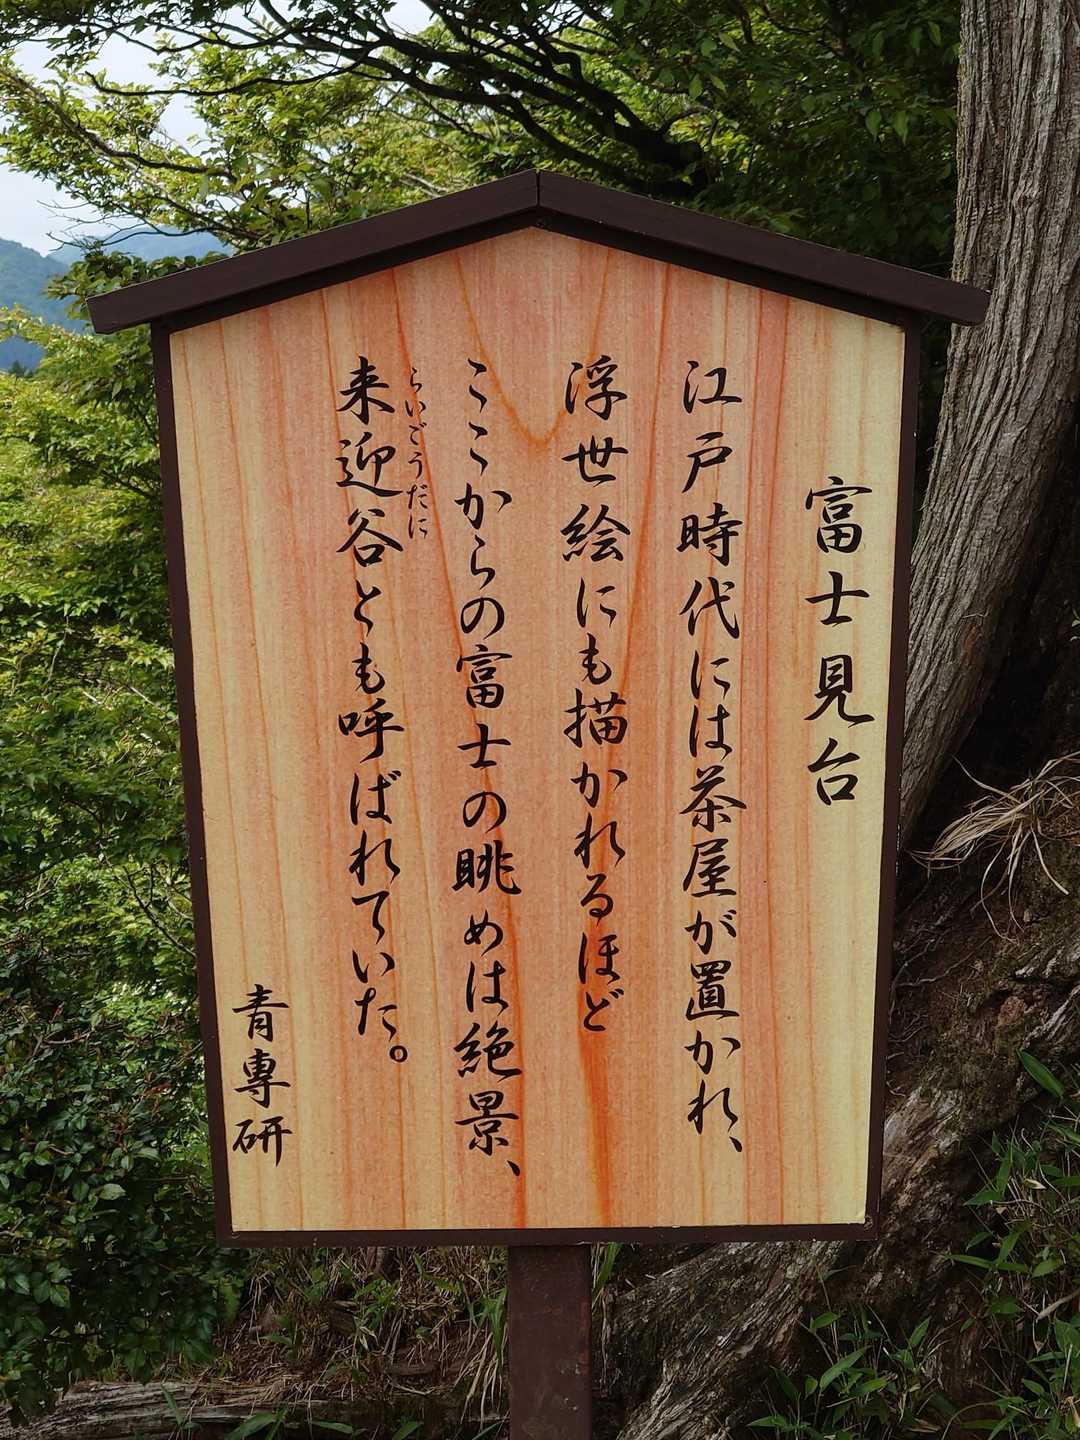 富士見台
江戸時代には茶屋が置かれ、
浮世絵にも描かれるほど
ここからの富士の眺めは絶景、
らいごうだに
来迎谷とも呼ばれていた。
青專研